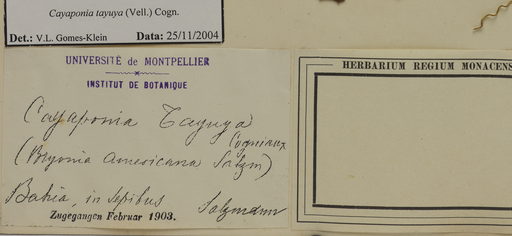 Cayaponia tayuya (Vell.) Cogn.
Det.: V.L. Gomes-Klein Data: 25/11/2004
UNIVERSITÉ de MONTPELLIER
INSTITUT DE BOTANIQUE
Cayaponia Tayuya
Cogniaux
(Bryonia americana Salzm)
Bahia, in sepibus Salzmann
Zugegangen Februar 1903.
HERBARIUM REGIUM MONACENS